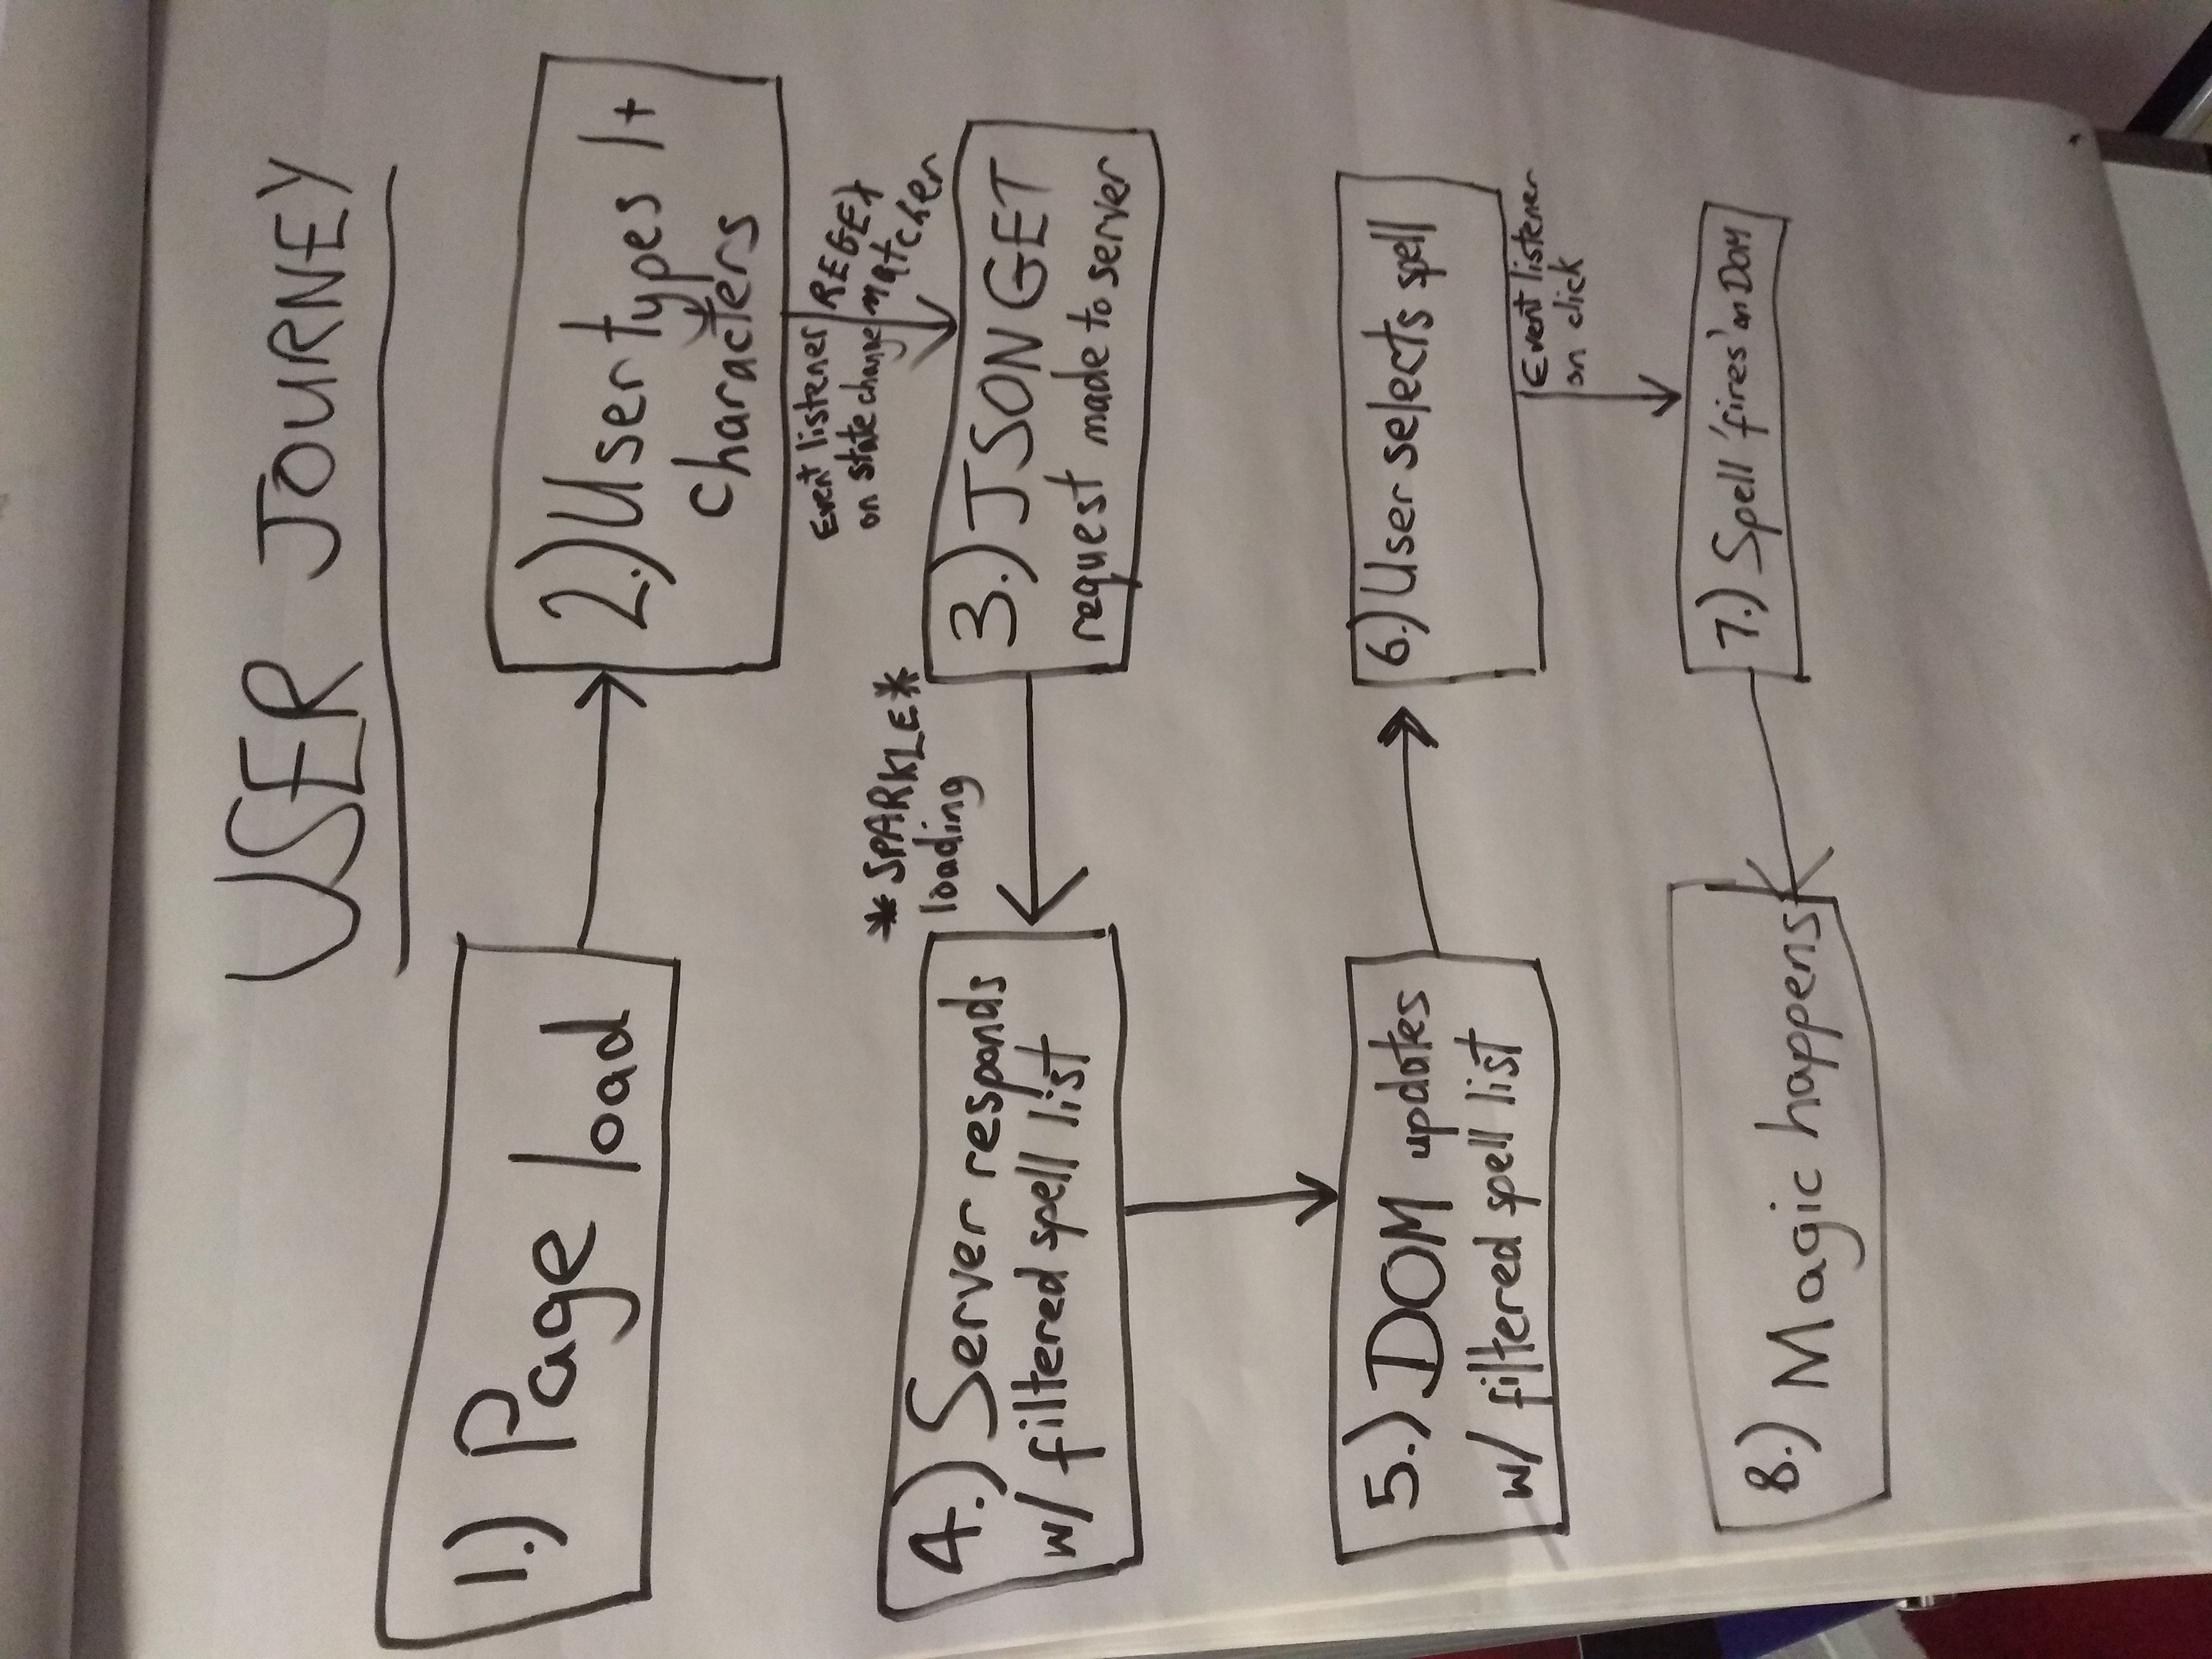 USER JOURNEY
1.) Page load
2.) User types 1+
characters
Event listener
on state change
REGEX
matcher
3.) JSON GET
request made to server
*SPARKLE*
loading
4.) Server responds
w/ filtered spell list
5.) DOM updates
w/ filtered spell list
6.) User selects spell
Event listener
on click
7.) Spell 'fires' on DOM
8.) Magic happens